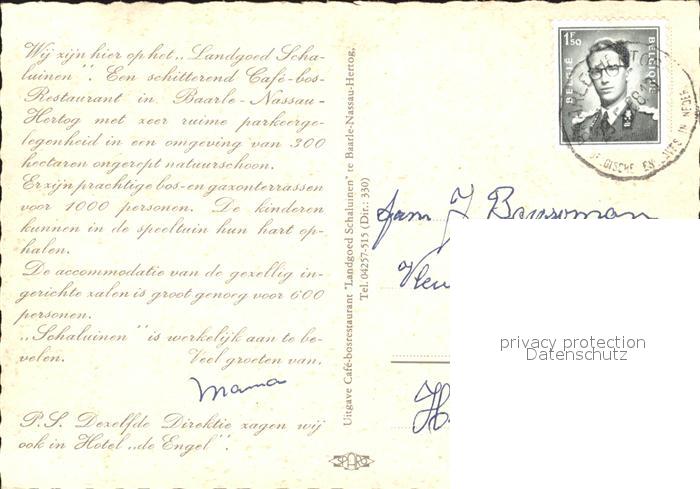 Wij zijn hier op het „Landgoed Scha-
luinen". Een schitterend Café-bos-
Restaurant in Baarle-Nassau-
Hertog met zeer ruime parkeerge-
legenheid in een omgeving van 300
hectaren ongerept natuurschoon.
Er zijn prachtige bos- en gazonterrassen
voor 1000 personen. De kinderen
kunnen in de speeltuin hun hart op-
halen.
De accommodatie van de gezellig in-
gerichte zalen is groot genoeg voor 600
personen.
„Schaluinen" is werkelijk aan te be-
velen. Veel groeten van.
Mama
P.S. Dezelfde Direktie zagen wij
ook in Hotel „de Engel".
Uitgave Café-bosrestaurant "Landgoed Schaluinen" te Baarle-Nassau-Hertog,
Tel. 04257-515 (Dir.: 330)
SPARO
1F50
BELGIË BELGIQUE
fam J
privacy protection
Datenschutz